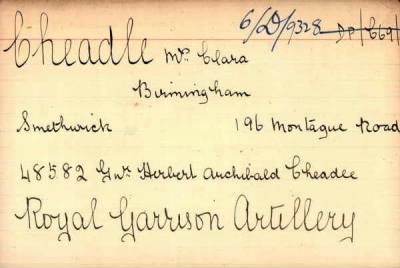 Cheadle Mrs Clara 6/D/9328 DP/C69/
Birmingham
Smethwick 196 Montague Road
48582 Gnr Herbert Archibald Cheadle
Royal Garrison Artillery